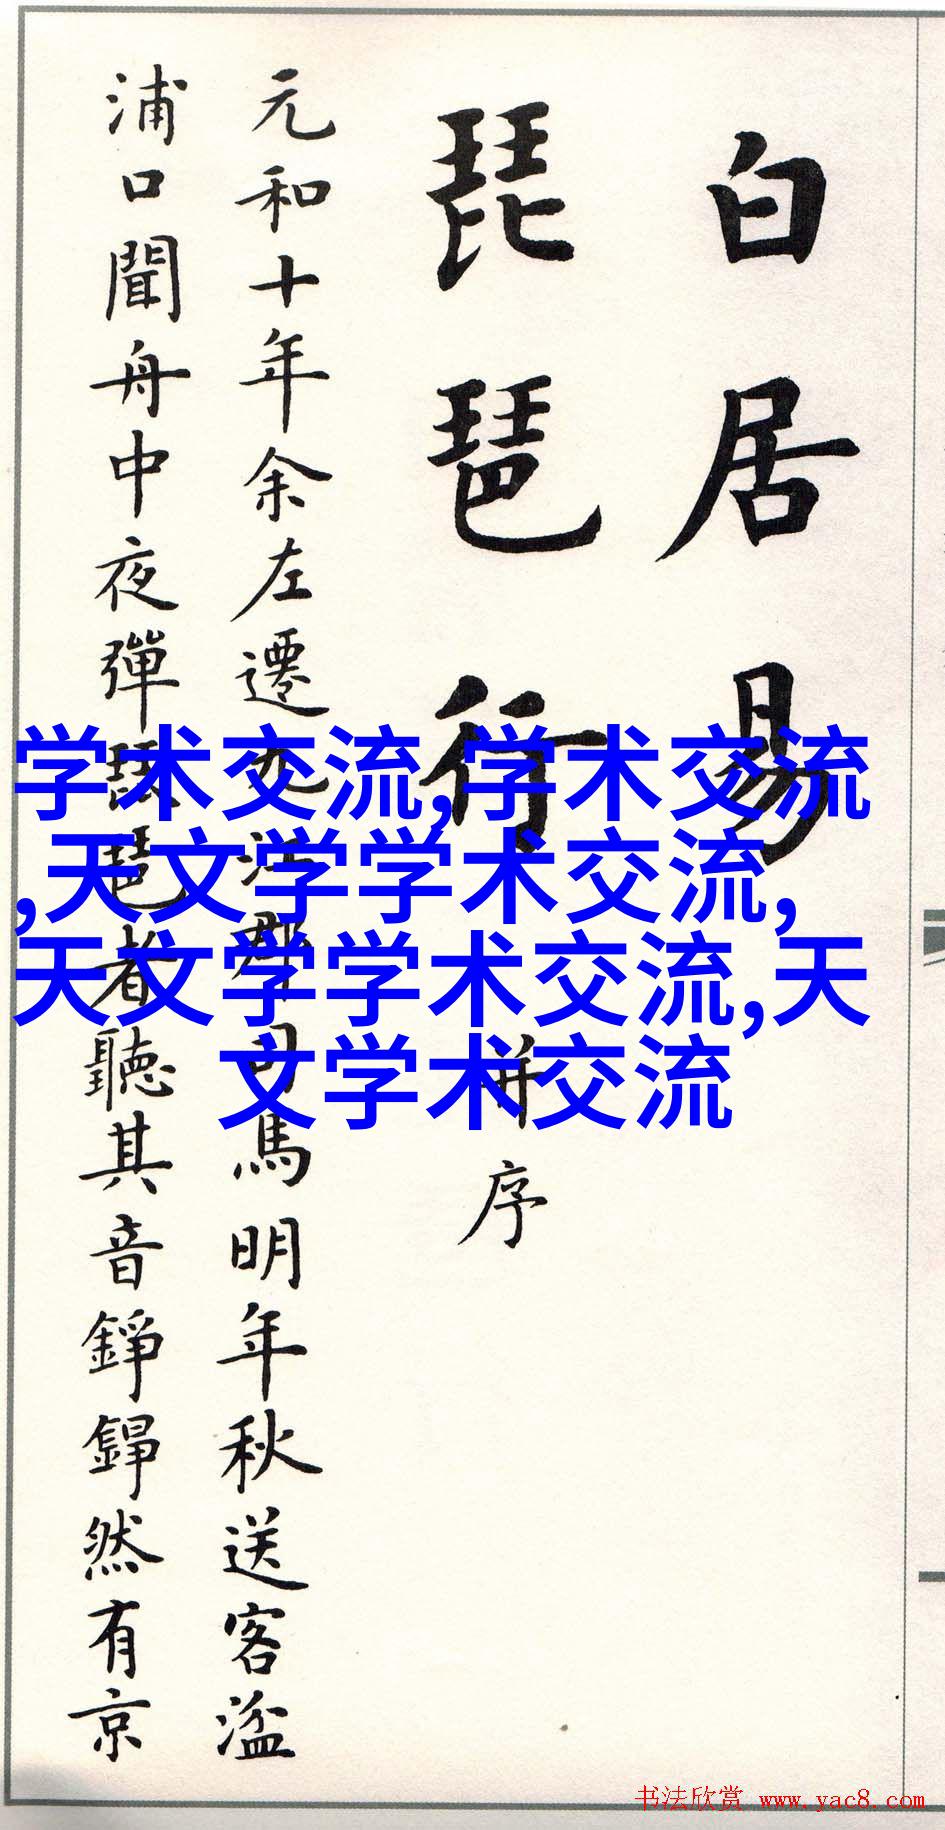 白居易
琵琶行
并序
元和十年余左遷九江郡司馬明年秋送客湓
浦口聞舟中夜彈琵琶者聽其音錚錚然有京
学术交流,学术交流
,天文学学术交流,
天文学学术交流,天
文学术交流
书法欣赏 www.yac8.com